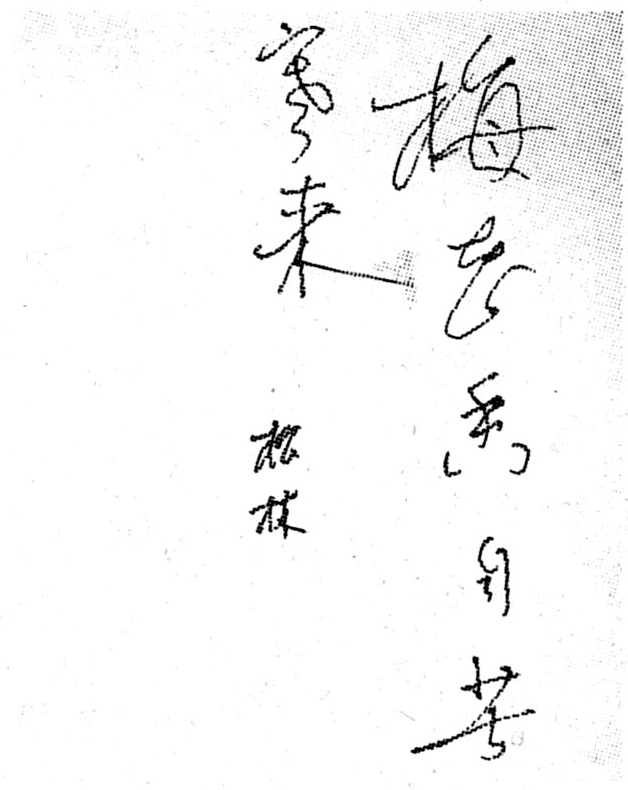 梅花香自苦
寒来
松林